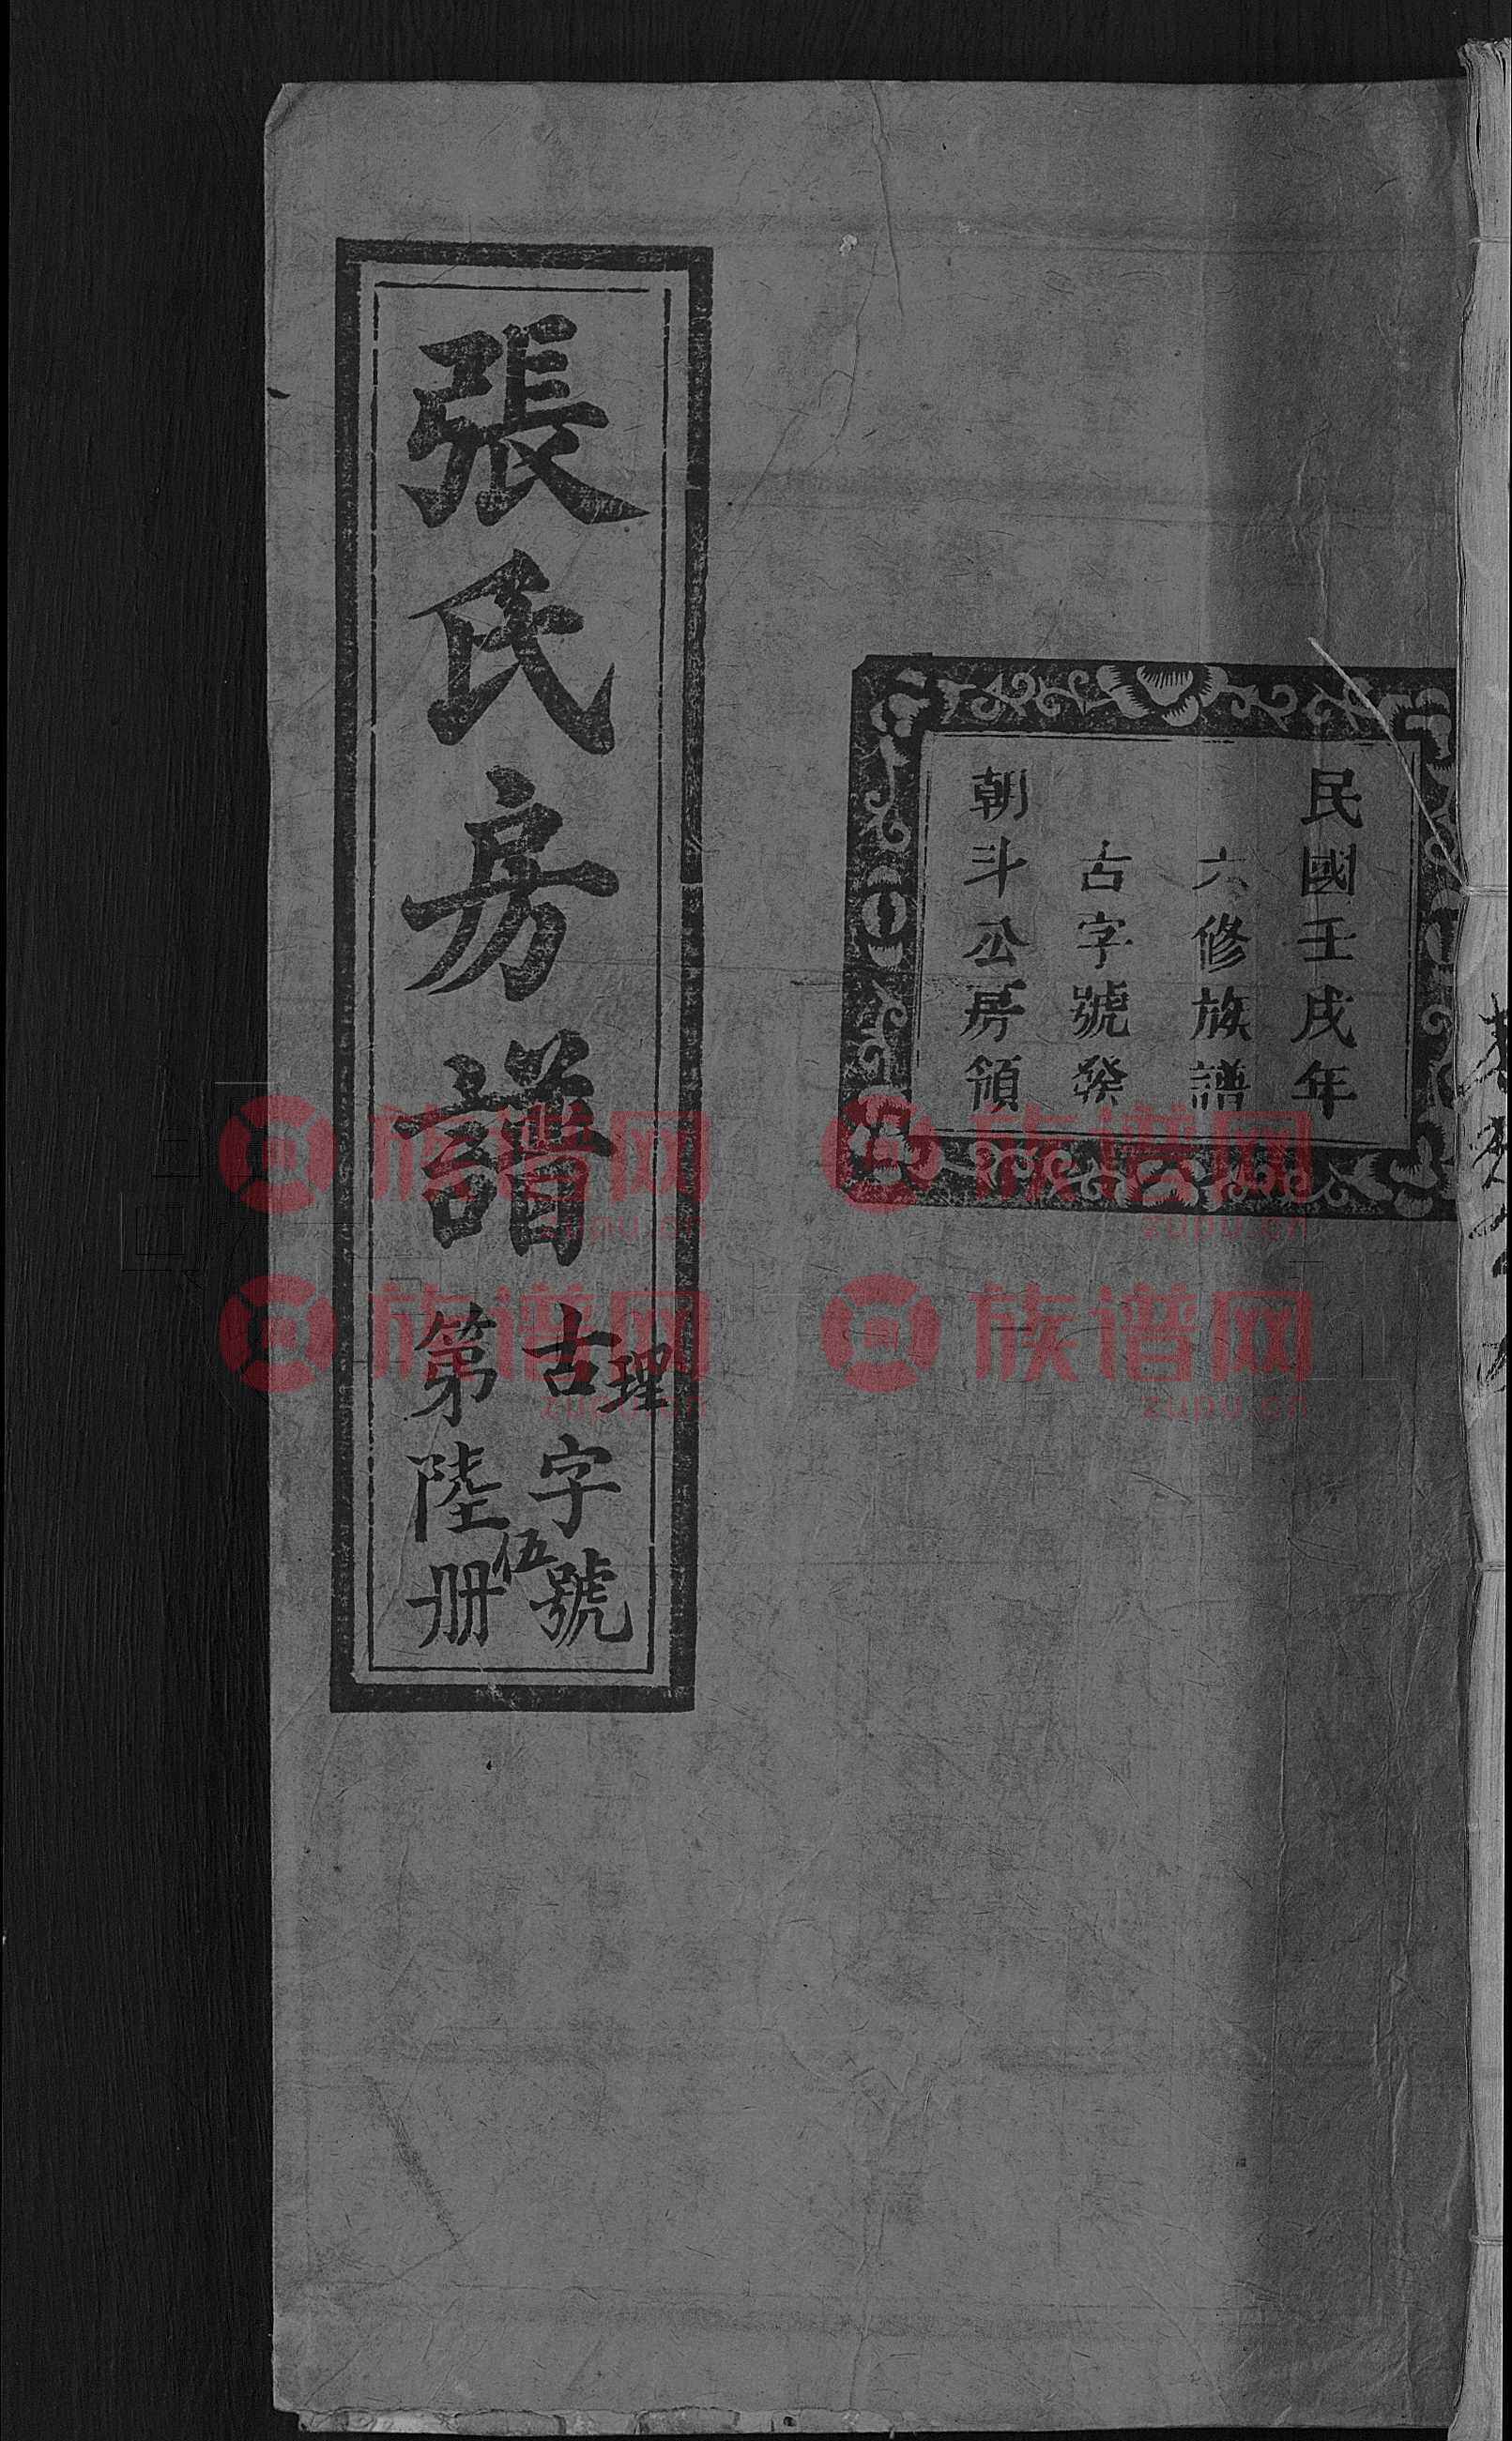 民國壬戌年
六修族譜
古字號發
朝斗公房領
張氏房譜
古字號
理
第陸册
伍
族谱网
zupu.cn
族谱网
zupu.cn
族谱网
zupu.cn
族谱网
zupu.cn